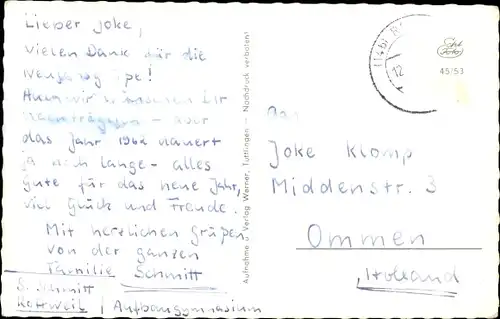 Lieber Joke,
vielen Dank für die
Neujahrsgrüße!
Auch wir wünschen Dir
nachträglich – aber
das Jahr 1962 dauert
ja noch lange – alles
Gute für das neue Jahr,
viel Glück und Freude.
Mit herzlichen Grüßen
von der ganzen
Familie Schmitt
S. Schmitt
Rottweil / Aufbaugymnasium
Aufnahme u. Verlag Werner, Tuttlingen – Nachdruck verboten!
(14b)
12
Echt
Foto
45/53
An
Joke Klomp
Middenstr. 3
Ommen
Holland